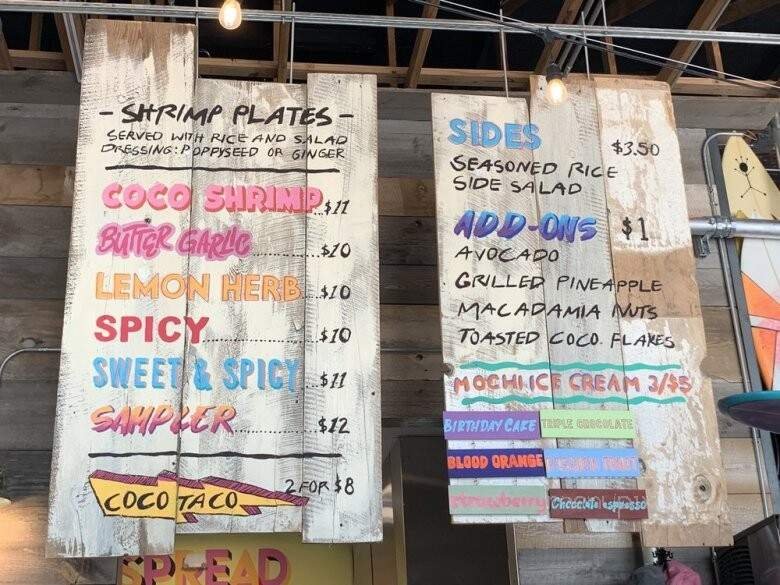 - SHRIMP PLATES -
SERVED WITH RICE AND SALAD
DRESSING: POPPYSEED OR GINGER
COCO SHRIMP..$11
BUTTER GARLIC......$10
LEMON HERB...$10
SPICY..................$10
SWEET & SPICY $11
SAMPLER..............$12
COCO TACO 2 FOR $8
SPREAD
SIDES $3.50
SEASONED RICE
SIDE SALAD
ADD-ONS $1
AVOCADO
GRILLED PINEAPPLE
MACADAMIA NUTS
TOASTED COCO. FLAKES
MOCHI ICE CREAM 3/$5
BIRTHDAY CAKE TRIPLE CHOCOLATE
BLOOD ORANGE
Strawberry Chocolate espresso